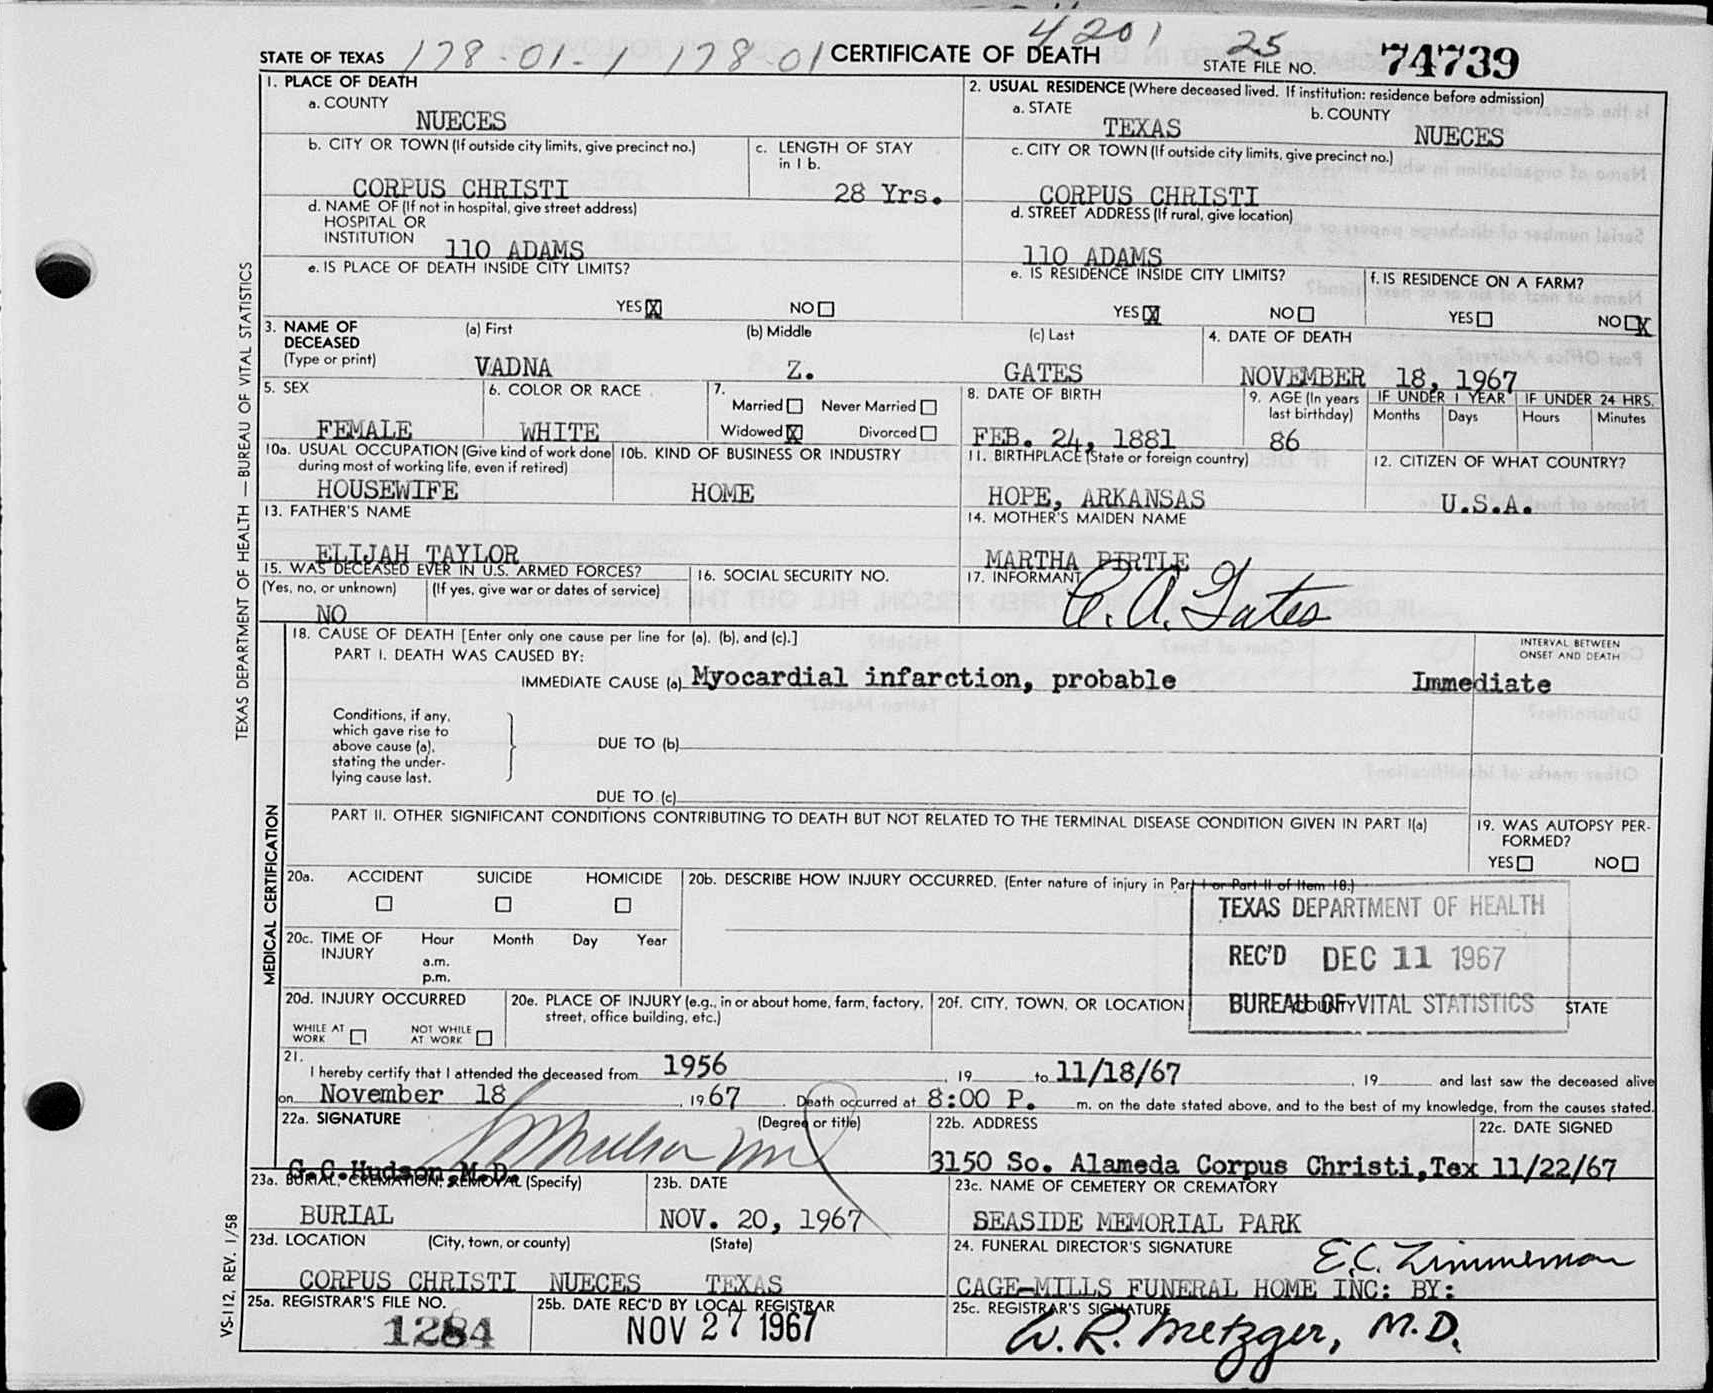 4201
STATE OF TEXAS 178-01-1 178-01 CERTIFICATE OF DEATH 25 STATE FILE NO. 74739
1. PLACE OF DEATH
a. COUNTY
NUECES
2. USUAL RESIDENCE (Where deceased lived. If institution: residence before admission)
a. STATE b. COUNTY
TEXAS NUECES
b. CITY OR TOWN (If outside city limits, give precinct no.)
c. LENGTH OF STAY
in 1 b.
CORPUS CHRISTI 28 Yrs.
c. CITY OR TOWN (If outside city limits, give precinct no.)
CORPUS CHRISTI
d. NAME OF (If not in hospital, give street address)
HOSPITAL OR
INSTITUTION 110 ADAMS
d. STREET ADDRESS (If rural, give location)
110 ADAMS
e. IS PLACE OF DEATH INSIDE CITY LIMITS?
YES X NO
e. IS RESIDENCE INSIDE CITY LIMITS?
YES X NO
f. IS RESIDENCE ON A FARM?
YES NO X
3. NAME OF
DECEASED
(Type or print)
(a) First (b) Middle (c) Last
VADNA Z. GATES
4. DATE OF DEATH
NOVEMBER 18, 1967
5. SEX
FEMALE
6. COLOR OR RACE
WHITE
7.
Married Never Married
Widowed X Divorced
8. DATE OF BIRTH
FEB. 24, 1881
9. AGE (In years
last birthday)
86
IF UNDER 1 YEAR
Months Days
IF UNDER 24 HRS.
Hours Minutes
10a. USUAL OCCUPATION (Give kind of work done
during most of working life, even if retired)
HOUSEWIFE
10b. KIND OF BUSINESS OR INDUSTRY
HOME
11. BIRTHPLACE (State or foreign country)
HOPE, ARKANSAS
12. CITIZEN OF WHAT COUNTRY?
U.S.A.
13. FATHER'S NAME
ELIJAH TAYLOR
14. MOTHER'S MAIDEN NAME
MARTHA PIRTLE
15. WAS DECEASED EVER IN U.S. ARMED FORCES?
(Yes, no, or unknown) (If yes, give war or dates of service)
NO
16. SOCIAL SECURITY NO.
17. INFORMANT
C. A. Gates
MEDICAL CERTIFICATION
18. CAUSE OF DEATH [Enter only one cause per line for (a), (b), and (c).]
PART I. DEATH WAS CAUSED BY:
INTERVAL BETWEEN
ONSET AND DEATH
IMMEDIATE CAUSE (a) Myocardial infarction, probable Immediate
Conditions, if any,
which gave rise to
above cause (a),
stating the under-
lying cause last.
DUE TO (b)
DUE TO (c)
PART II. OTHER SIGNIFICANT CONDITIONS CONTRIBUTING TO DEATH BUT NOT RELATED TO THE TERMINAL DISEASE CONDITION GIVEN IN PART I(a)
19. WAS AUTOPSY PER-
FORMED?
YES NO
20a. ACCIDENT SUICIDE HOMICIDE
20b. DESCRIBE HOW INJURY OCCURRED. (Enter nature of injury in Part I or Part II of Item 18.)
TEXAS DEPARTMENT OF HEALTH
REC'D DEC 11 1967
BUREAU OF VITAL STATISTICS
20c. TIME OF
INJURY
Hour Month Day Year
a.m.
p.m.
20d. INJURY OCCURRED
WHILE AT
WORK
NOT WHILE
AT WORK
20e. PLACE OF INJURY (e.g., in or about home, farm, factory,
street, office building, etc.)
20f. CITY, TOWN, OR LOCATION COUNTY STATE
21.
I hereby certify that I attended the deceased from 1956, 19 to 11/18/67, 19 and last saw the deceased alive
on November 18, 1967. Death occurred at 8:00 P. m. on the date stated above, and to the best of my knowledge, from the causes stated.
22a. SIGNATURE (Degree or title)
G.C. Hudson MD
G.C.Hudson,M.D.
22b. ADDRESS
3150 So. Alameda Corpus Christi,Tex
22c. DATE SIGNED
11/22/67
23a. BURIAL, CREMATION, REMOVAL (Specify)
BURIAL
23b. DATE
NOV. 20, 1967
23c. NAME OF CEMETERY OR CREMATORY
SEASIDE MEMORIAL PARK
23d. LOCATION (City, town, or county) (State)
CORPUS CHRISTI NUECES TEXAS
24. FUNERAL DIRECTOR'S SIGNATURE
E.C. Zimmerman
CAGE-MILLS FUNERAL HOME INC: BY:
25a. REGISTRAR'S FILE NO.
1284
25b. DATE REC'D BY LOCAL REGISTRAR
NOV 27 1967
25c. REGISTRAR'S SIGNATURE
W. R. Metzger, M.D.
TEXAS DEPARTMENT OF HEALTH — BUREAU OF VITAL STATISTICS
VS-112, REV. 1/58